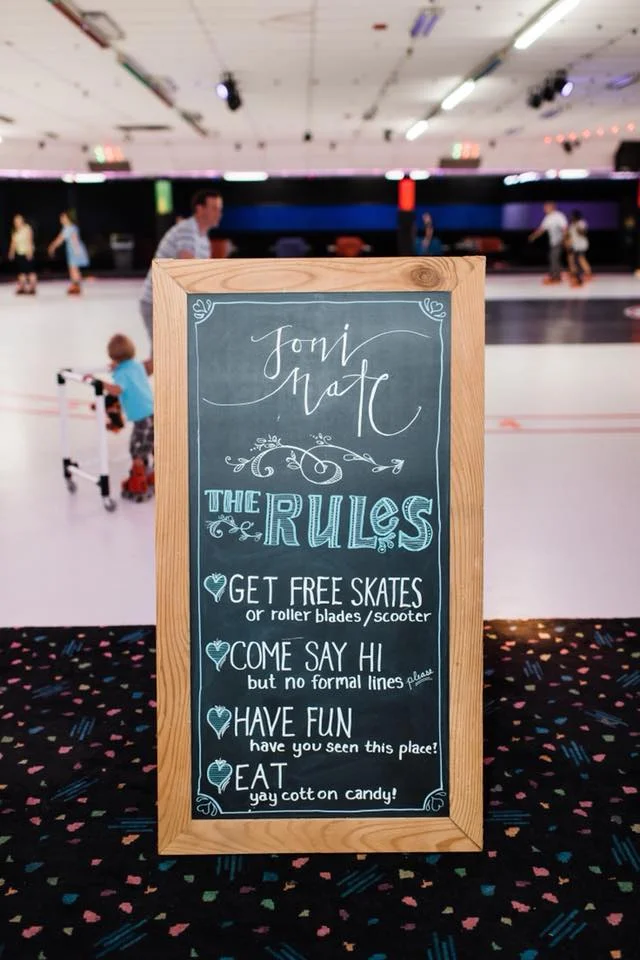 Joni
Nate
THE RULES
GET FREE SKATES
or roller blades/scooter
COME SAY HI
but no formal lines please
HAVE FUN
have you seen this place!
EAT
yay cotton candy!